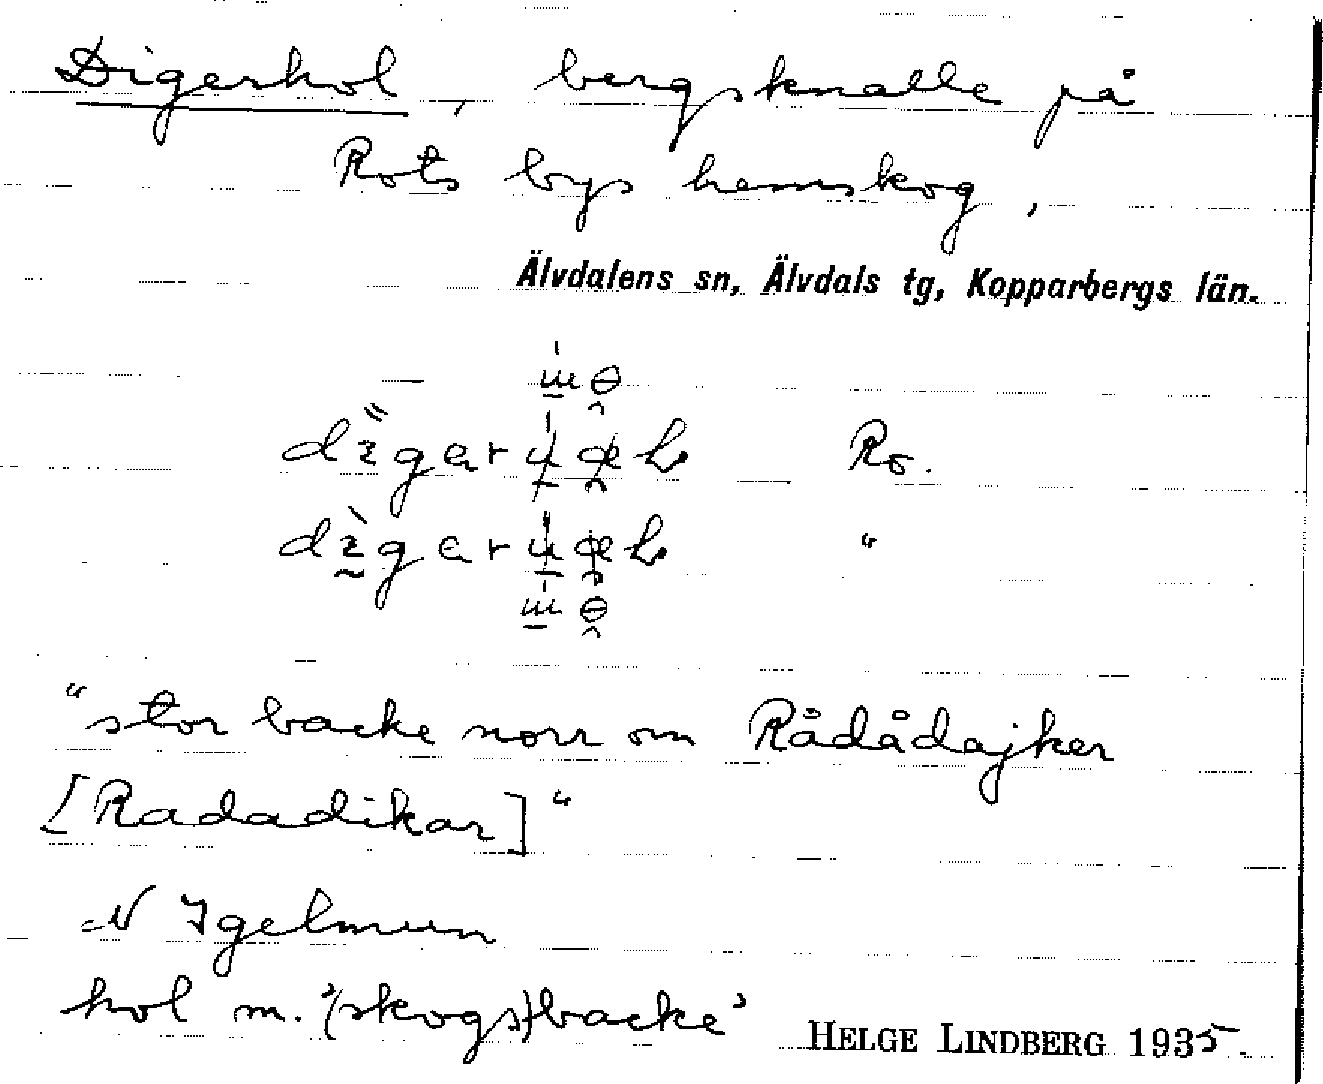 Digerhol, bergsknalle på
Rots bys hemskog,
Älvdalens sn, Älvdals tg, Kopparbergs län.
Ro.
"
"stor backe norr om Rådådajker
[Radadikar]"
N Igelmurn
hol m. '(skogs)backe'
HELGE LINDBERG 1935.